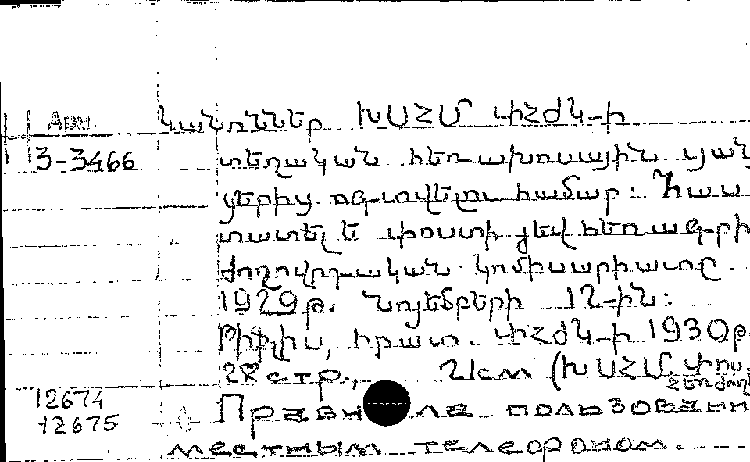 Арм.
Կանոններ ԽՍՀՄ ՓՀԺԿ-ի
3-3466
տեղական հեռախոսային ցան
ցերից օգտվելու համար: Հաս
տատել է փոստի յեվ հեռագրի
ժողովրդական կոմիսարիատը
1929թ. նոյեմբերի 12-ին:
Թիֆլիս, հրատ. ՓՀԺԿ-ի 1930թ
28 стр., 21см (ԽՍՀՄ Փոս.
Հեռ. ժող
12674
12675
Правила пользовани
местным телефоном.